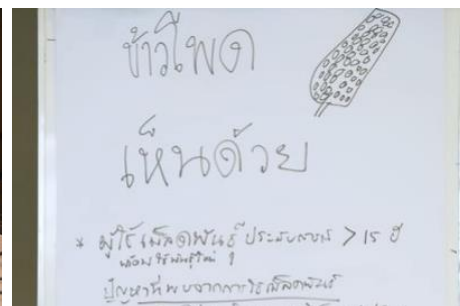 ข้าวโพด
เห็นด้วย
* ผู้ใช้เมล็ดพันธุ์ ประสบการณ์ > 15 ปี
ปัญหาที่พบจากการใช้เมล็ดพันธุ์